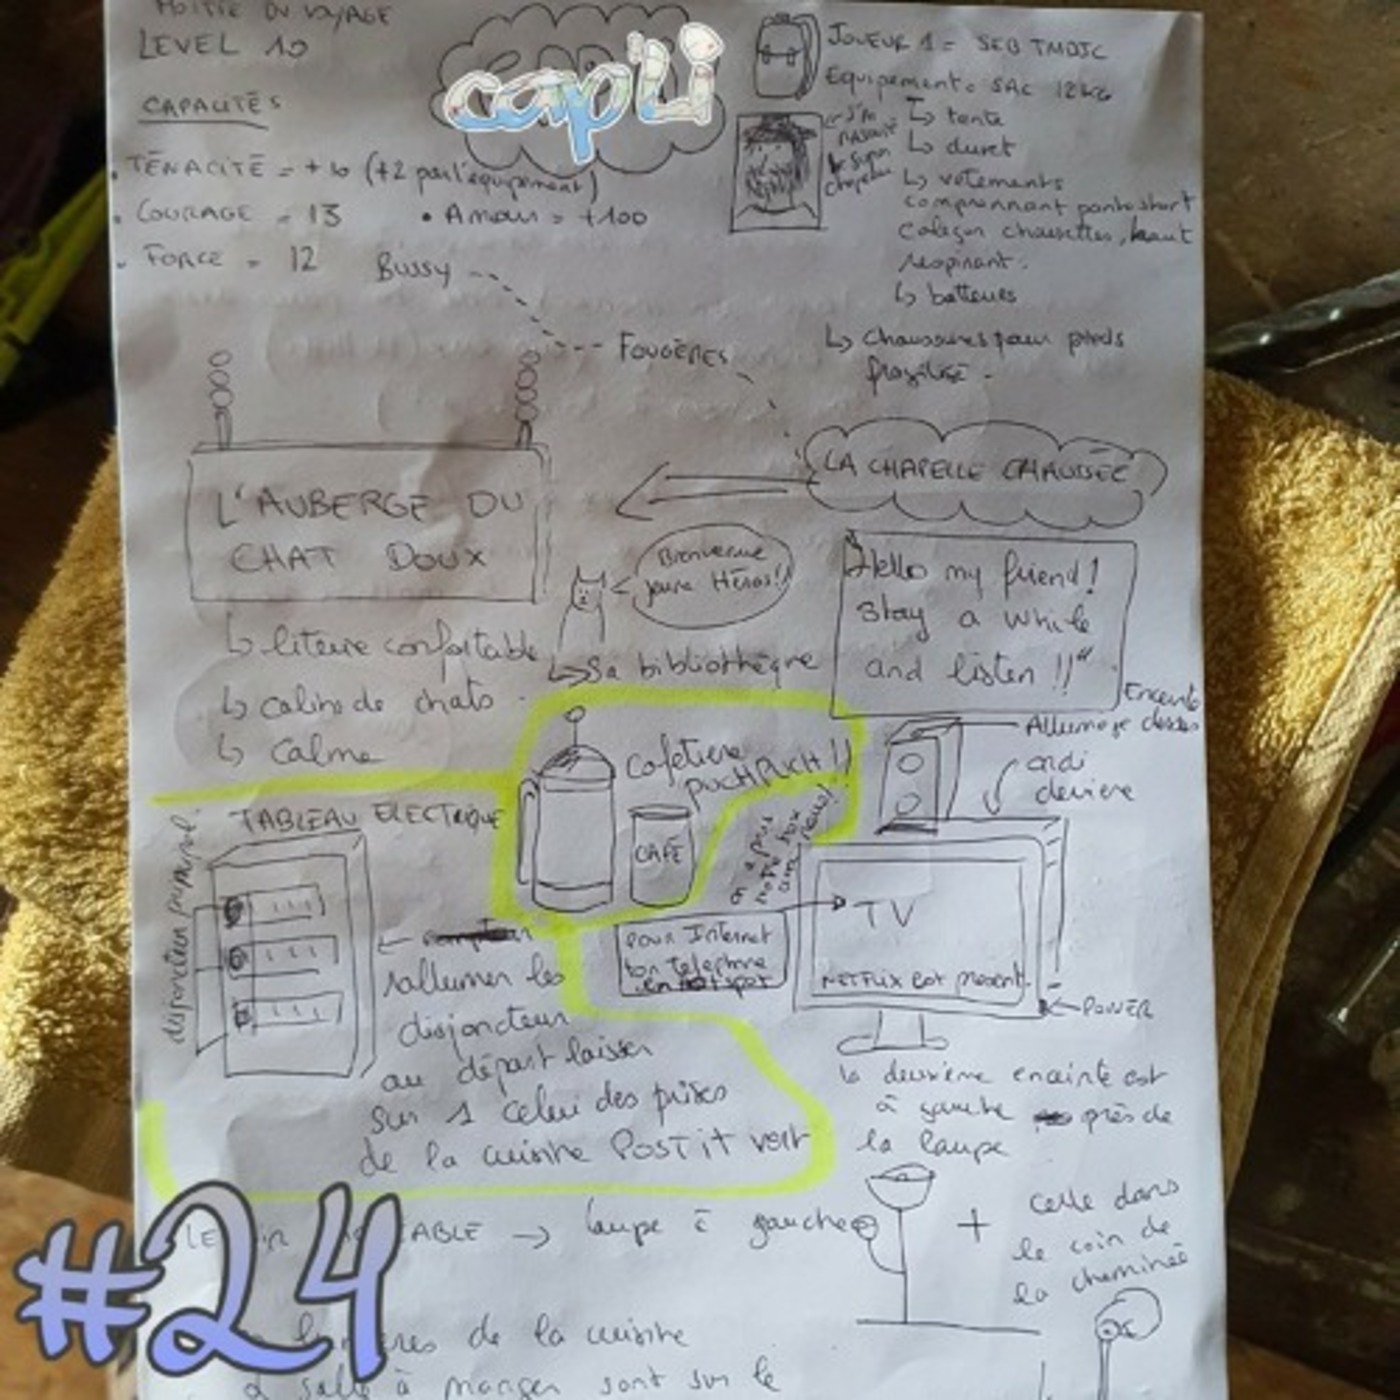 MOITIÉ DU VOYAGE
LEVEL 10
CAPACITÉS
• TÉNACITÉ = + 10 (+2 par l'équipement)
• COURAGE = 13 • Amour = +100
• FORCE = 12
cap'li
JOUEUR 1 = SEB TMDJC
Equipement = SAC 12kg
↳ tente
↳ duvet
↳ vêtements
comprennant pantoshort
caleçon chaussettes, haut
respirant.
↳ batteries
↳ chaussures pour pieds
fragilisé.
Bussy
FOUGÈRES
LA CHAPELLE CHAUSSÉE
L'AUBERGE DU
CHAT DOUX
Bienvenue
jeune Héros!!
Hello my friend!
Stay a while
and listen !!"
↳ literie confortable
↳ calins de chats
↳ calme
↳ Sa bibliothèque
Cafetière
PUCHPUCH !!
CAFÉ
Enceinte
Allumage dessus
ordi
derriere
TABLEAU ELECTRIQUE
disjoncteur principal
← rallumer les
disjoncteur
au départ laisser
sur 1 celui des prises
de la cuisine POST it vert
on a plus
notre box
pour Internet
ton telephone
en hotspot
TV
NETFLIX est present
← POWER
la deuxième enceinte est
à gauche près de
la lampe
→ lampe à gauche
+ celle dans
le coin de
la cheminée
de la cuisine
salle à manger sont sur le
#24